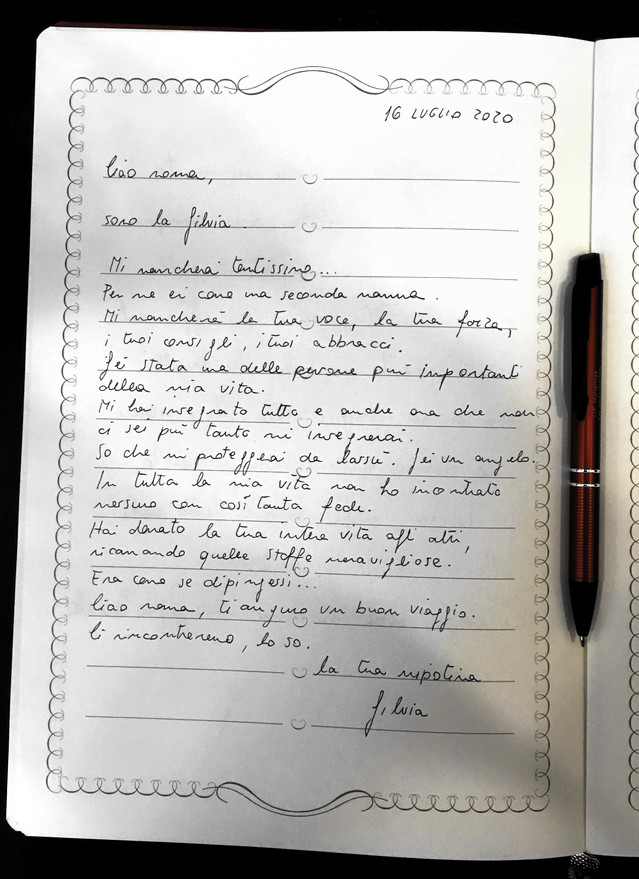 16 LUGLIO 2020
Ciao nonna,
sono la Silvia
Mi mancherai tantissimo...
Per me eri come una seconda mamma.
Mi mancherà la tua voce, la tua forza,
i tuoi consigli, i tuoi abbracci.
Sei stata una delle persone più importanti
della mia vita.
Mi hai insegnato tutto e anche ora che non
ci sei più tanto mi insegnerai.
So che mi proteggerai da lassù. Sei un angelo.
In tutta la mia vita non ho incontrato
nessuno con così tanta fede.
Hai donato la tua intera vita agli altri,
ricamando quelle stoffe meravigliose.
Era come se dipingessi...
Ciao nonna, ti auguro un buon viaggio.
Ci rincontreremo, lo so.
La tua nipotina
Silvia